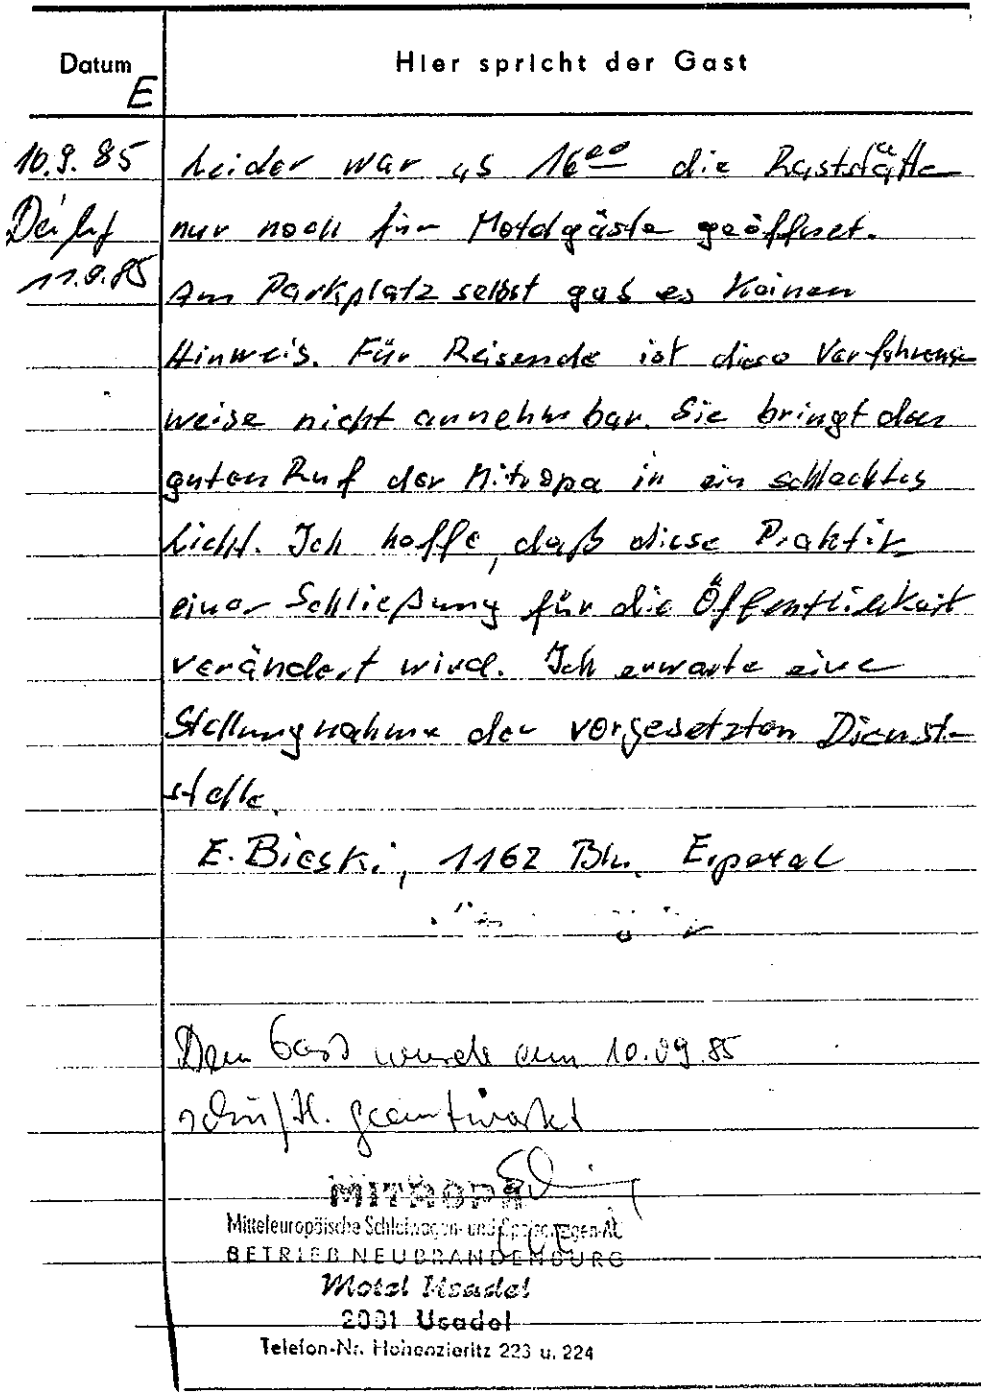 Datum
E
Hier spricht der Gast
10.9.85
11.9.85
Leider war as 16⁰⁰ die Raststätte
nur noch für Motelgäste geöffnet.
Am Parkplatz selbst gab es keinen
Hinweis. Für Reisende ist diese Verfahrens
weise nicht annehmbar. Sie bringt den
guten Ruf der Mitropa in ein schlechtes
Licht. Ich hoffe, daß diese Praktik
einer Schließung für die Öffentlichkeit
verändert wird. Ich erwarte eine
Stellungnahme der vorgesetzten Dienst-
stelle.
E. Bieski, 1162 Bln.
Dem Gast wurde am 10.09.85
schriftl. geantwortet
MITROPA
Mitteleuropäische Schlafwagen- und Speisewagen-AG
BETRIEB NEUBRANDENBURG
Motel Usadel
2081 Usadel
Telefon-Nr. Hohenzieritz 223 u. 224